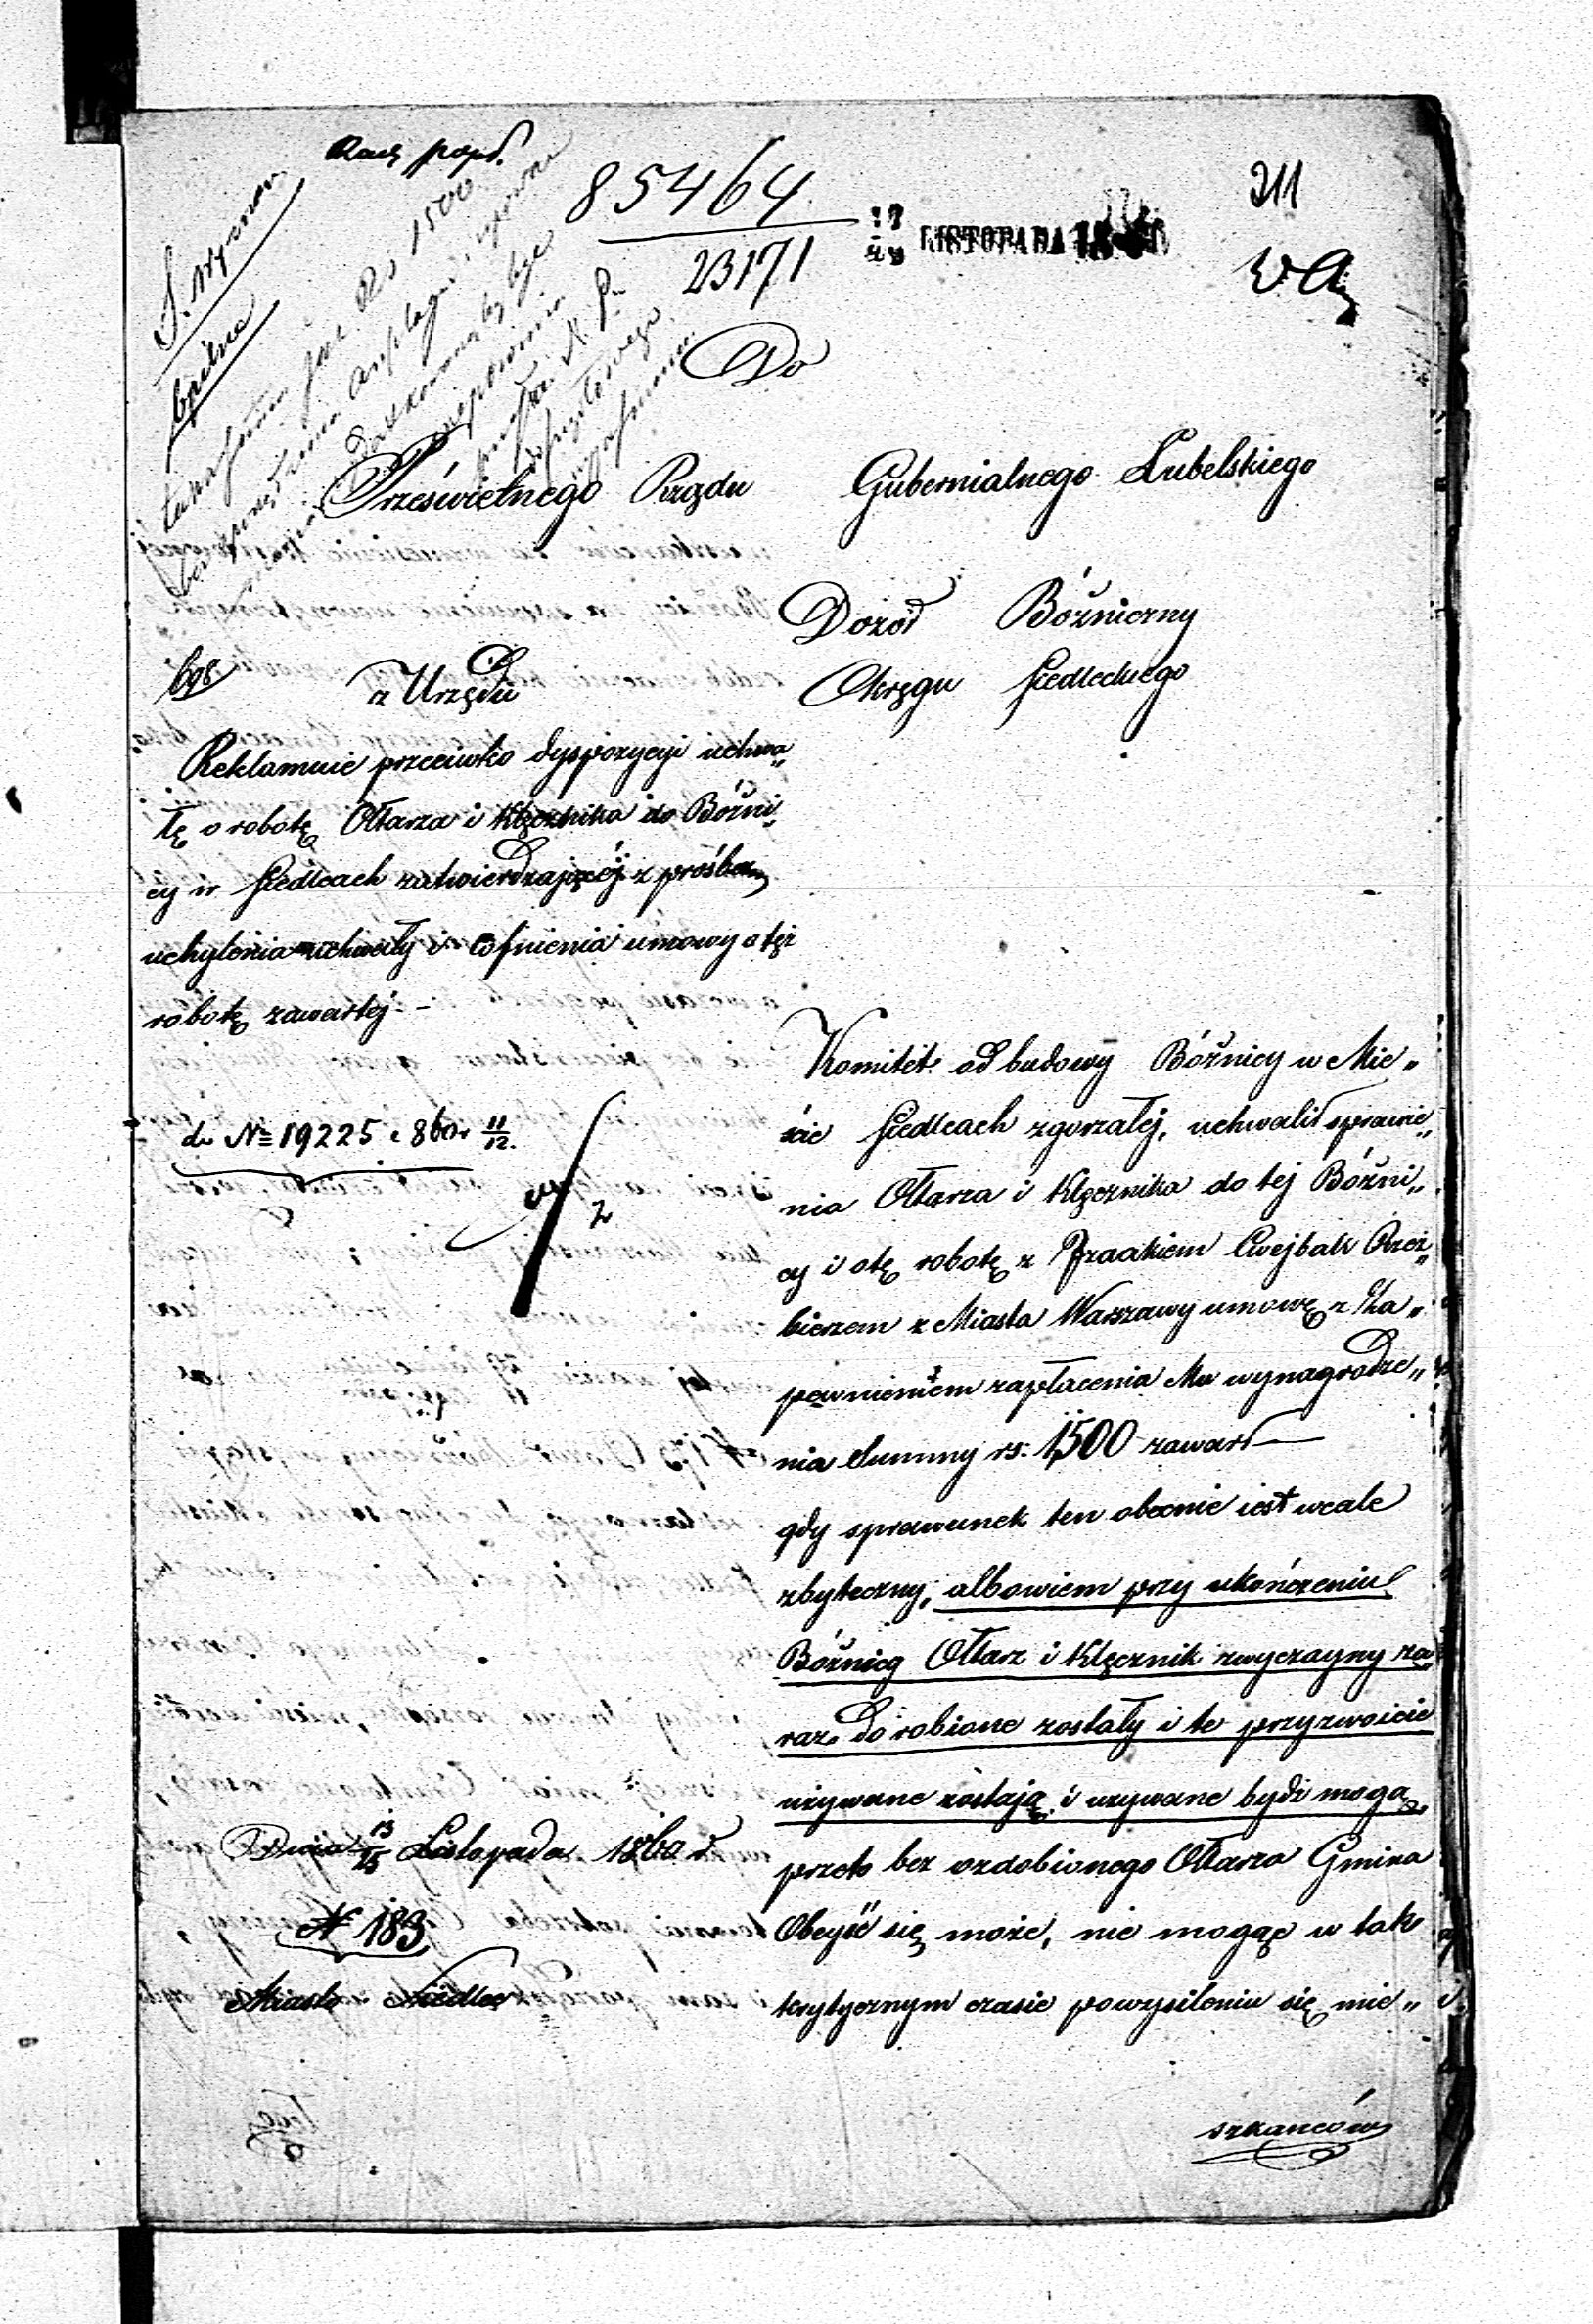 211
85464
23171
LISTOPADA
Do
Prześwietnego Rządu Gubernialnego Lubelskiego
Dozór Bóźniczny
Okręgu Siedleckiego
698
z Urzędu
Reklamuie przeciwko dyspozycyi uchwa„
łę o robotę Ołtarza i Klęcznika do Bóźni„
cy w Siedlcach zatwierdzającéj z prośbą
uchylenia uchwały i cofnienia umowy o tęż
robotę zawartéj. –
do № 19225 1860 r 11/12.
Komitet od budowy Bóźnicy w Mie„
ście Siedlcach zgorzałéj, uchwalił sprawie„
nia Ołtarza i Klęcznika do téj Bóźni„
cy i o tę robotę z Izaakiem Cwejbak Rzeź„
bierzem z Miasta Warszawy umowę z Za„
pewnieniem zapłacenia Mu wynagrodze„
nia Summy rs: 1,500 zawarł —
gdy sprawunek ten obecnie iest wcale
zbyteczny, albowiem przy ukończeniu
Bóźnicy Ołtarz i Klęcznik zwyczayny za„
raz do robione zostały i te przyzwoicie
używane zostają i używane bydź mogą,
przeto bez ozdobionego Ołtarza Gmina
Obeyść się może, nie mogąc w tak
krytycznym czasie powysileniu się mie„
szkańców
Dnia 13/25 Listopada 1860 r
№ 183
Miasto Siedlce